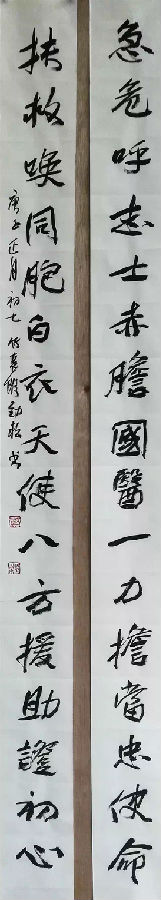 急危呼志士赤膽國醫一力擔當忠使命
扶救喚同胞白衣天使八方援助證初心
庚子正月初七